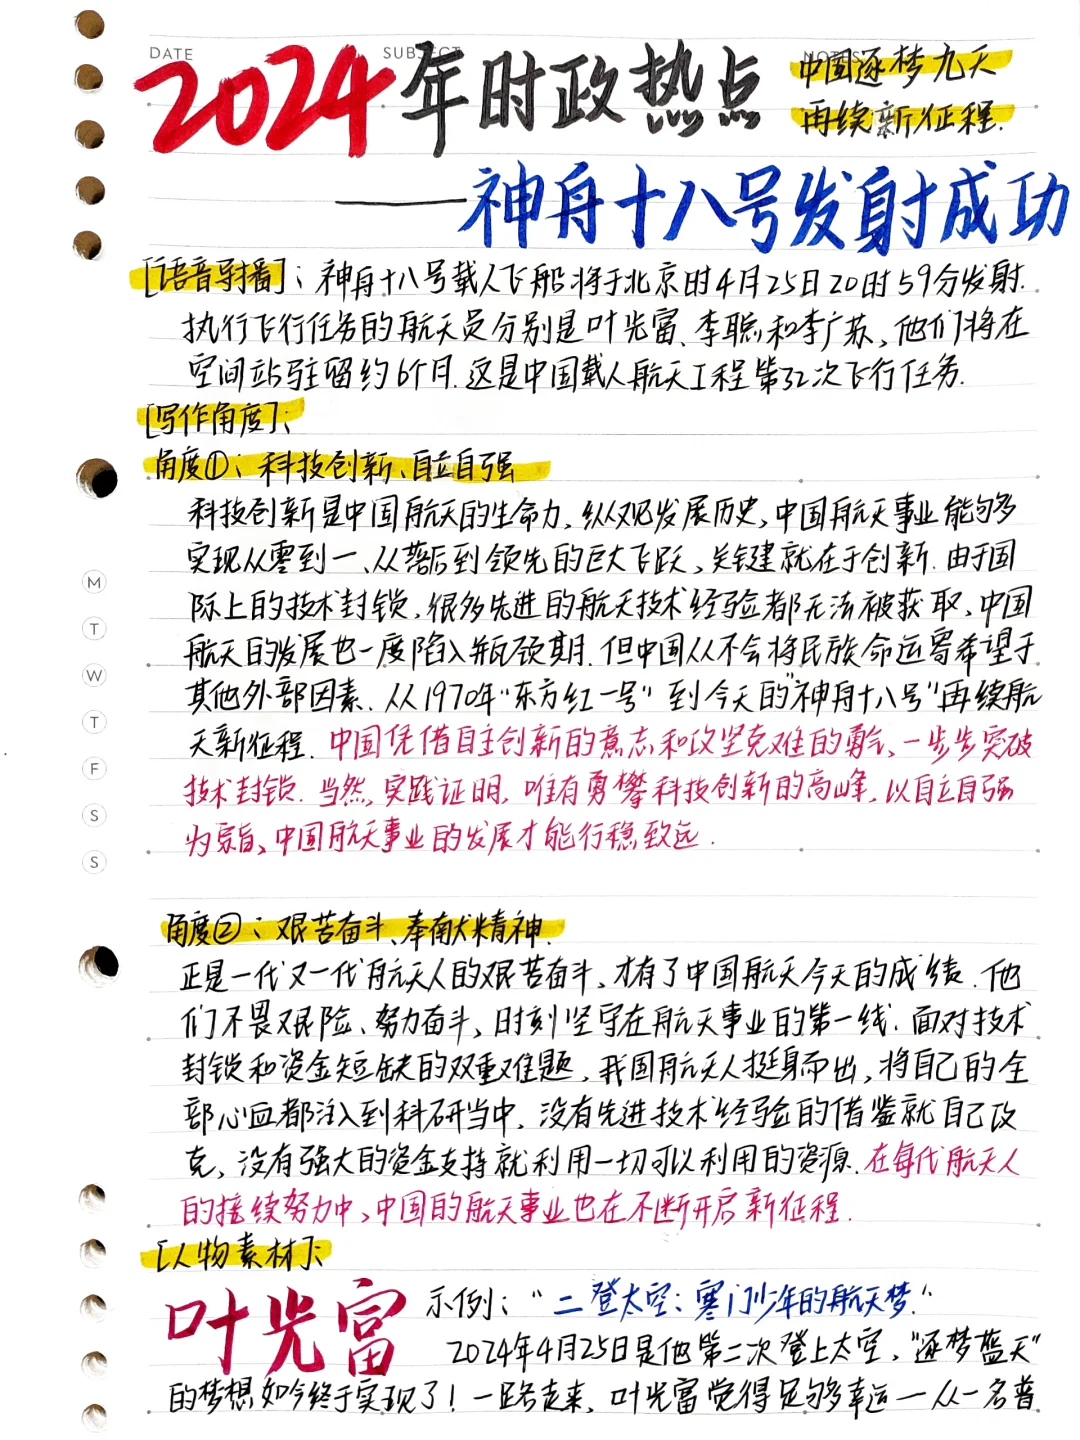 DATE
SUBJECT
NOTES
2024年时政热点
中国逐梦九天
再续新征程.
——神舟十八号发射成功
[语音导播]：神舟十八号载人飞船将于北京时4月25日20时59分发射.
执行飞行任务的航天员分别是叶光富、李聪和李广苏、他们将在
空间站驻留约6个月.这是中国载人航天工程第32次飞行任务.
[写作角度]：
角度①：科技创新、自立自强
科技创新是中国航天的生命力,纵观发展历史,中国航天事业能够多
实现从零到一、从落后到领先的巨大飞跃,关键就在于创新.由于国
际上的技术封锁,很多先进的航天技术经验都无法被获取,中国
航天的发展也一度陷入瓶颈期.但中国从不会将民族命运寄希望于
其他外部因素.从1970年"东方红一号"到今天的"神舟十八号"再续航
天新征程.中国凭借自主创新的意志和攻坚克难的勇气,一步步突破
技术封锁.当然,实践证明,唯有勇攀科技创新的高峰,以自立自强
为宗旨、中国航天事业的发展才能行稳致远.
角度②：艰苦奋斗、奉献精神.
正是一代又一代航天人的艰苦奋斗,才有了中国航天今天的成绩.他
们不畏艰险、努力奋斗,时刻坚守在航天事业的第一线.面对技术
封锁和资金短缺的双重难题,我国航天人挺身而出,将自己的全
部心血都注入到科研当中,没有先进技术经验的借鉴就自己攻
克,没有强大的资金支持就利用一切可以利用的资源.在每代航天人
的接续努力中,中国的航天事业也在不断开启新征程.
[人物素材]：
叶光富
示例："二登太空：寒门少年的航天梦."
2024年4月25日是他第二次登上太空,"逐梦蓝天"
的梦想如今终于实现了!一路走来,叶光富觉得足够幸运一从一名普
M
T
W
T
F
S
S